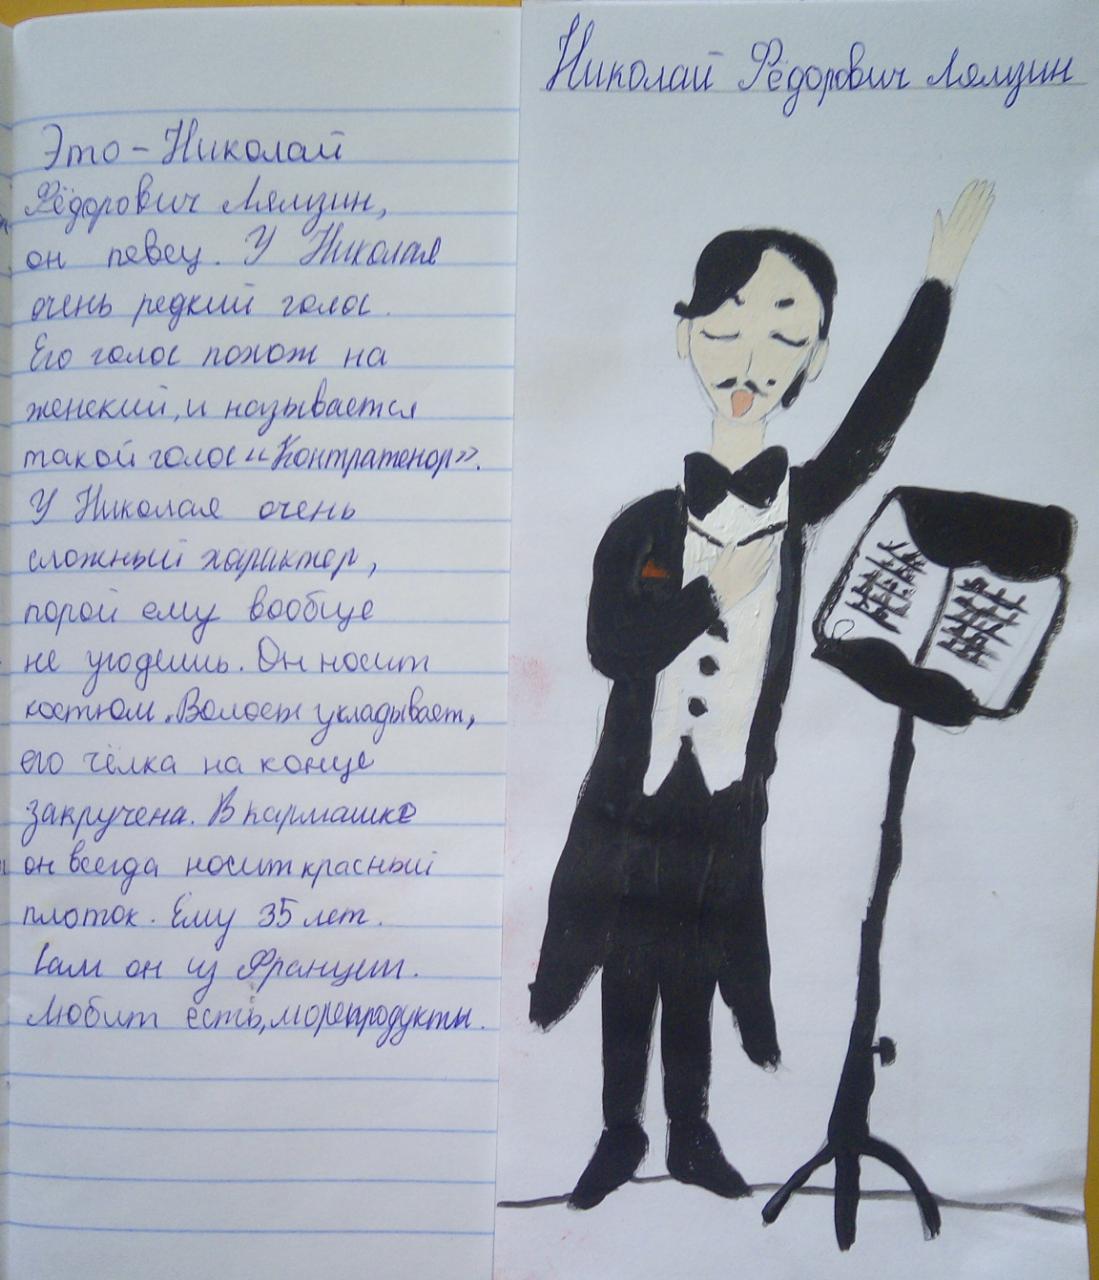 Николай Фёдорович Лямзин
Это - Николай
Фёдорович Лямзин,
он певец. У Николая
очень редкий голос.
Его голос похож на
женский, и называется
такой голос "Контратенор".
У Николая очень
сложный характер,
порой ему вообще
не угодешь. Он носит
костюм. Волосы укладывает,
его чёлка на конце
закручена. В кармашке
он всегда носит красный
платок. Ему 35 лет.
Сам он из Франции.
Любит есть, морепродукты.